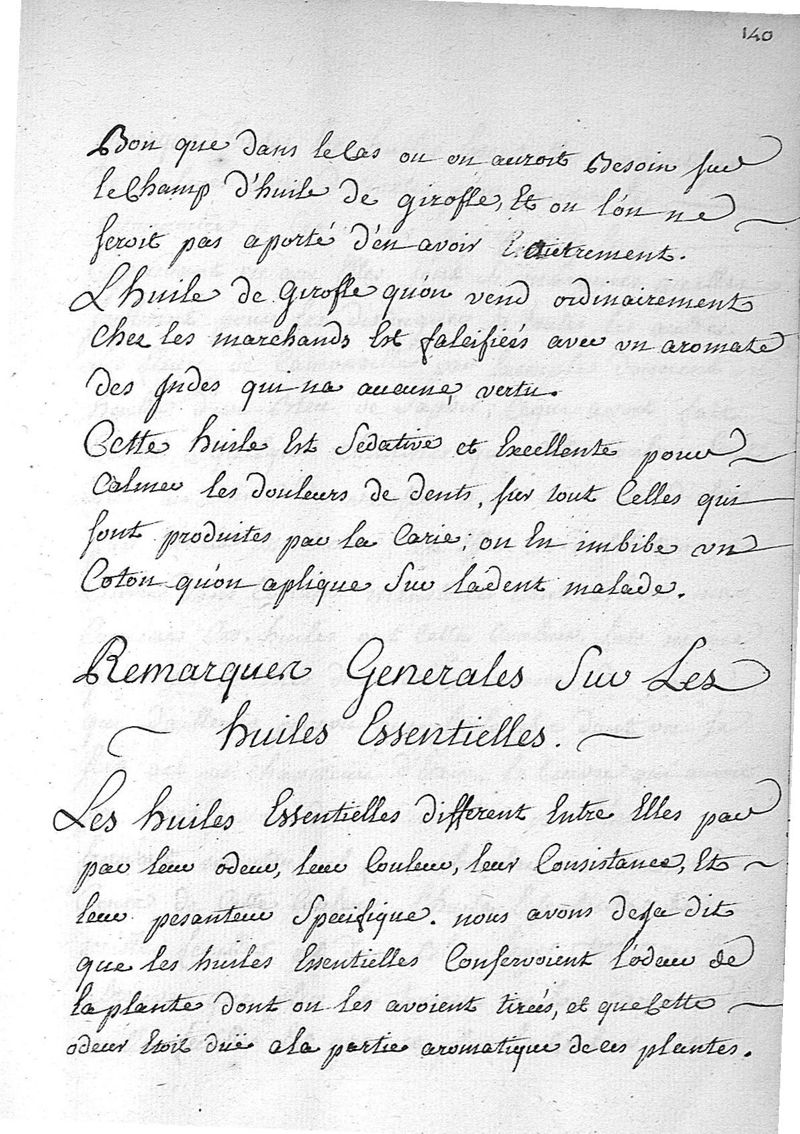 140
Bon que dans le Cas ou on auroit Besoin sur
le Champ d'huile de girofle, Et ou l'on ne
seroit pas aporté d'en avoir autrement.
L'huile de Girofle quon vend ordinairement
chez les marchands Est falcifiées avec un aromate
des Indes qui na aucune vertu.
Cette huile Est Sedative et Excellente pour
Calmer les douleurs de dents, sur tout Celles qui
sont produites par la Carie; on En imbibe un
Coton qu'on aplique Sur ladent malade.
Remarques Generales Sur Les
huiles Essentielles.
Les huiles Essentielles different Entre Elles par
par leur odeur, leur Couleur, leur Consistance, Et
leur pesanteur Specifique. nous avons deja dit
que les huiles Essentielles Conservoient l'odeur de
la plante dont on les avoient tirées, et que Cette
odeur Etoit duë a la partie aromatique de ces plantes.